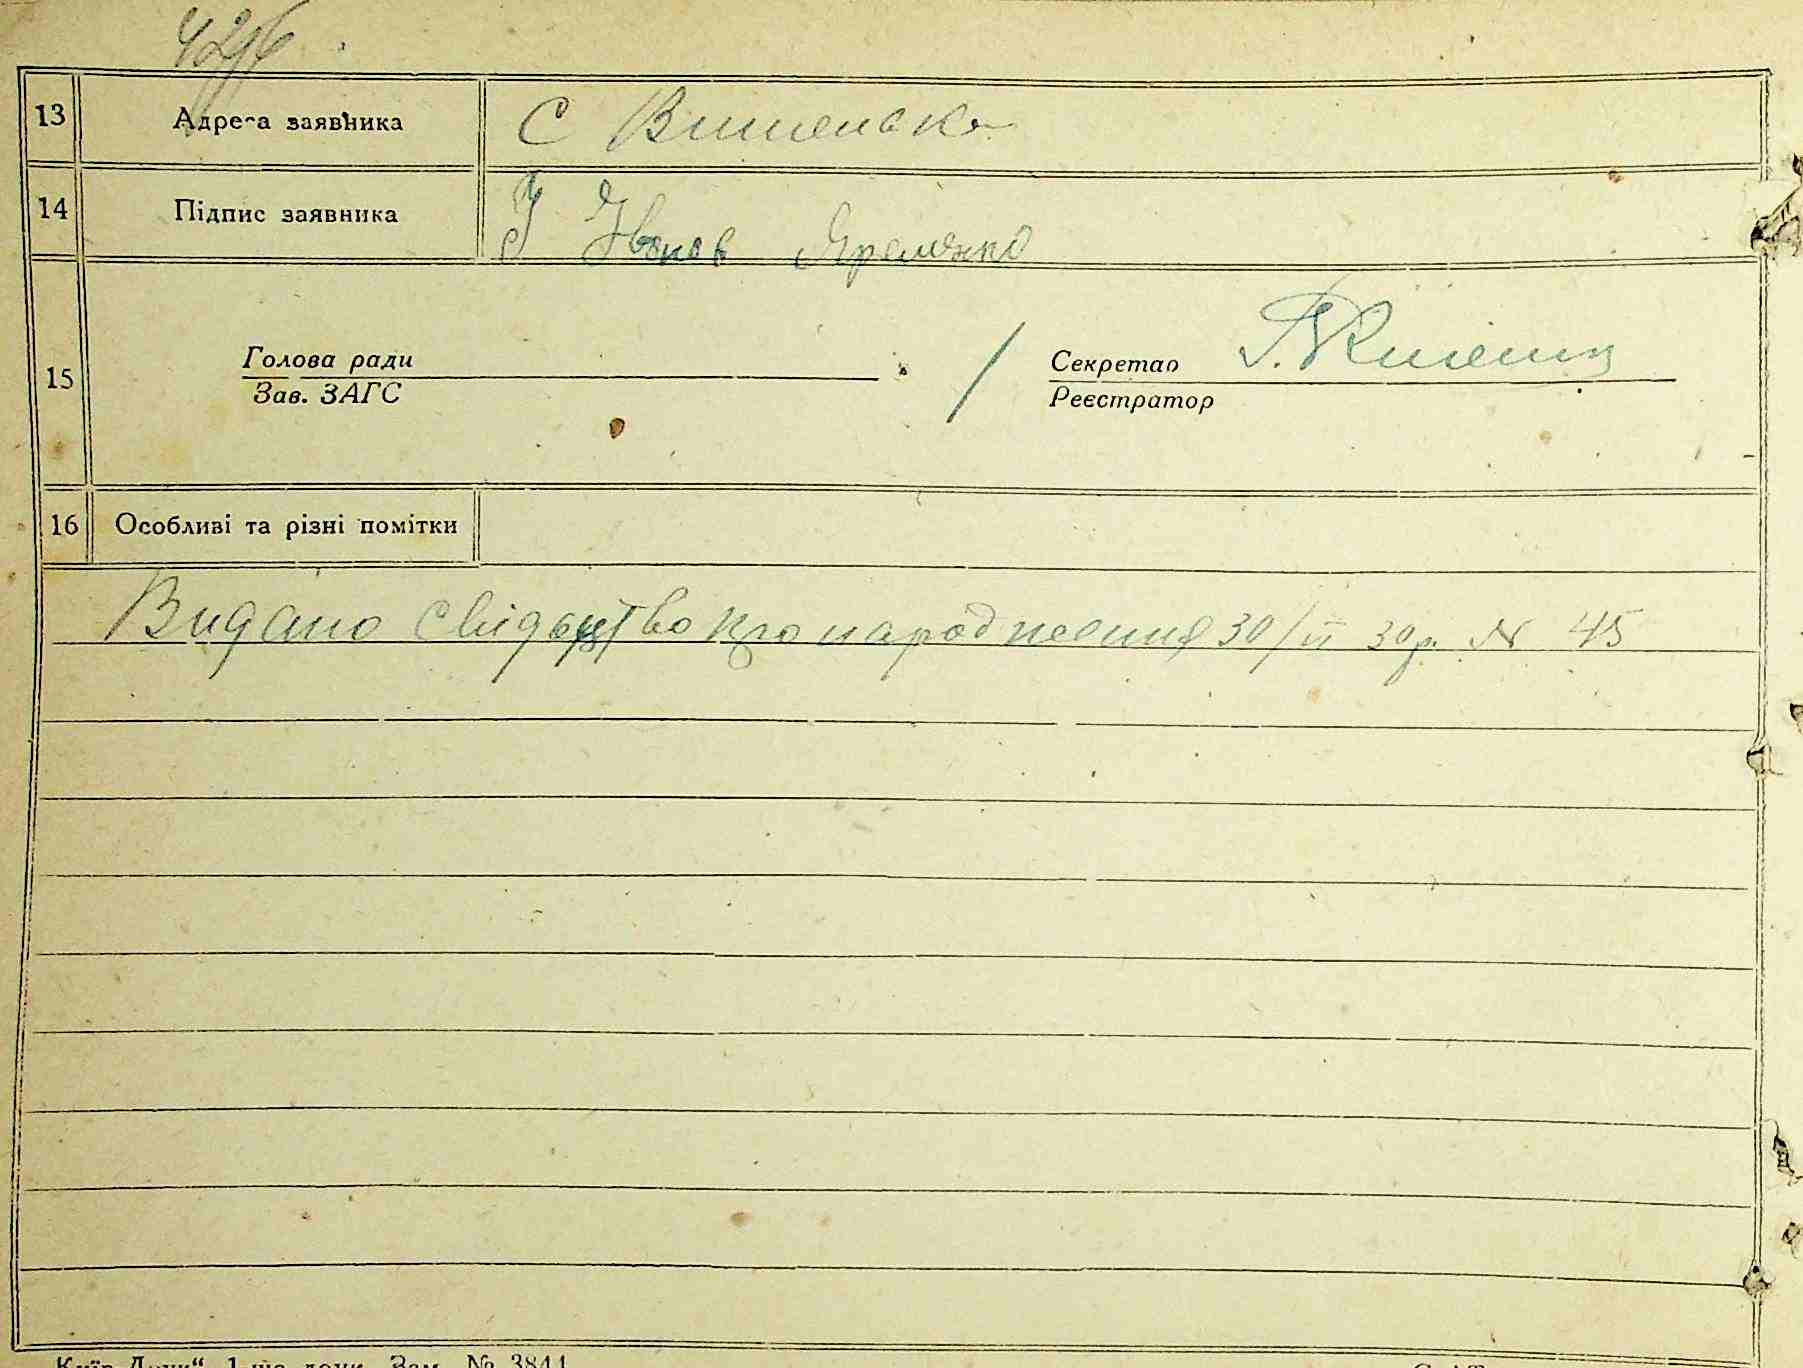 13 Адреса заявника С Вишенька
14 Підпис заявника Яременко
15 Голова ради
Зав. ЗАГС
Секретар
Реєстратор
16 Особливі та різні помітки
Видано свідоцтво про народження 30/VI 30р. № 45
1-ша друк. Зам. № 3844